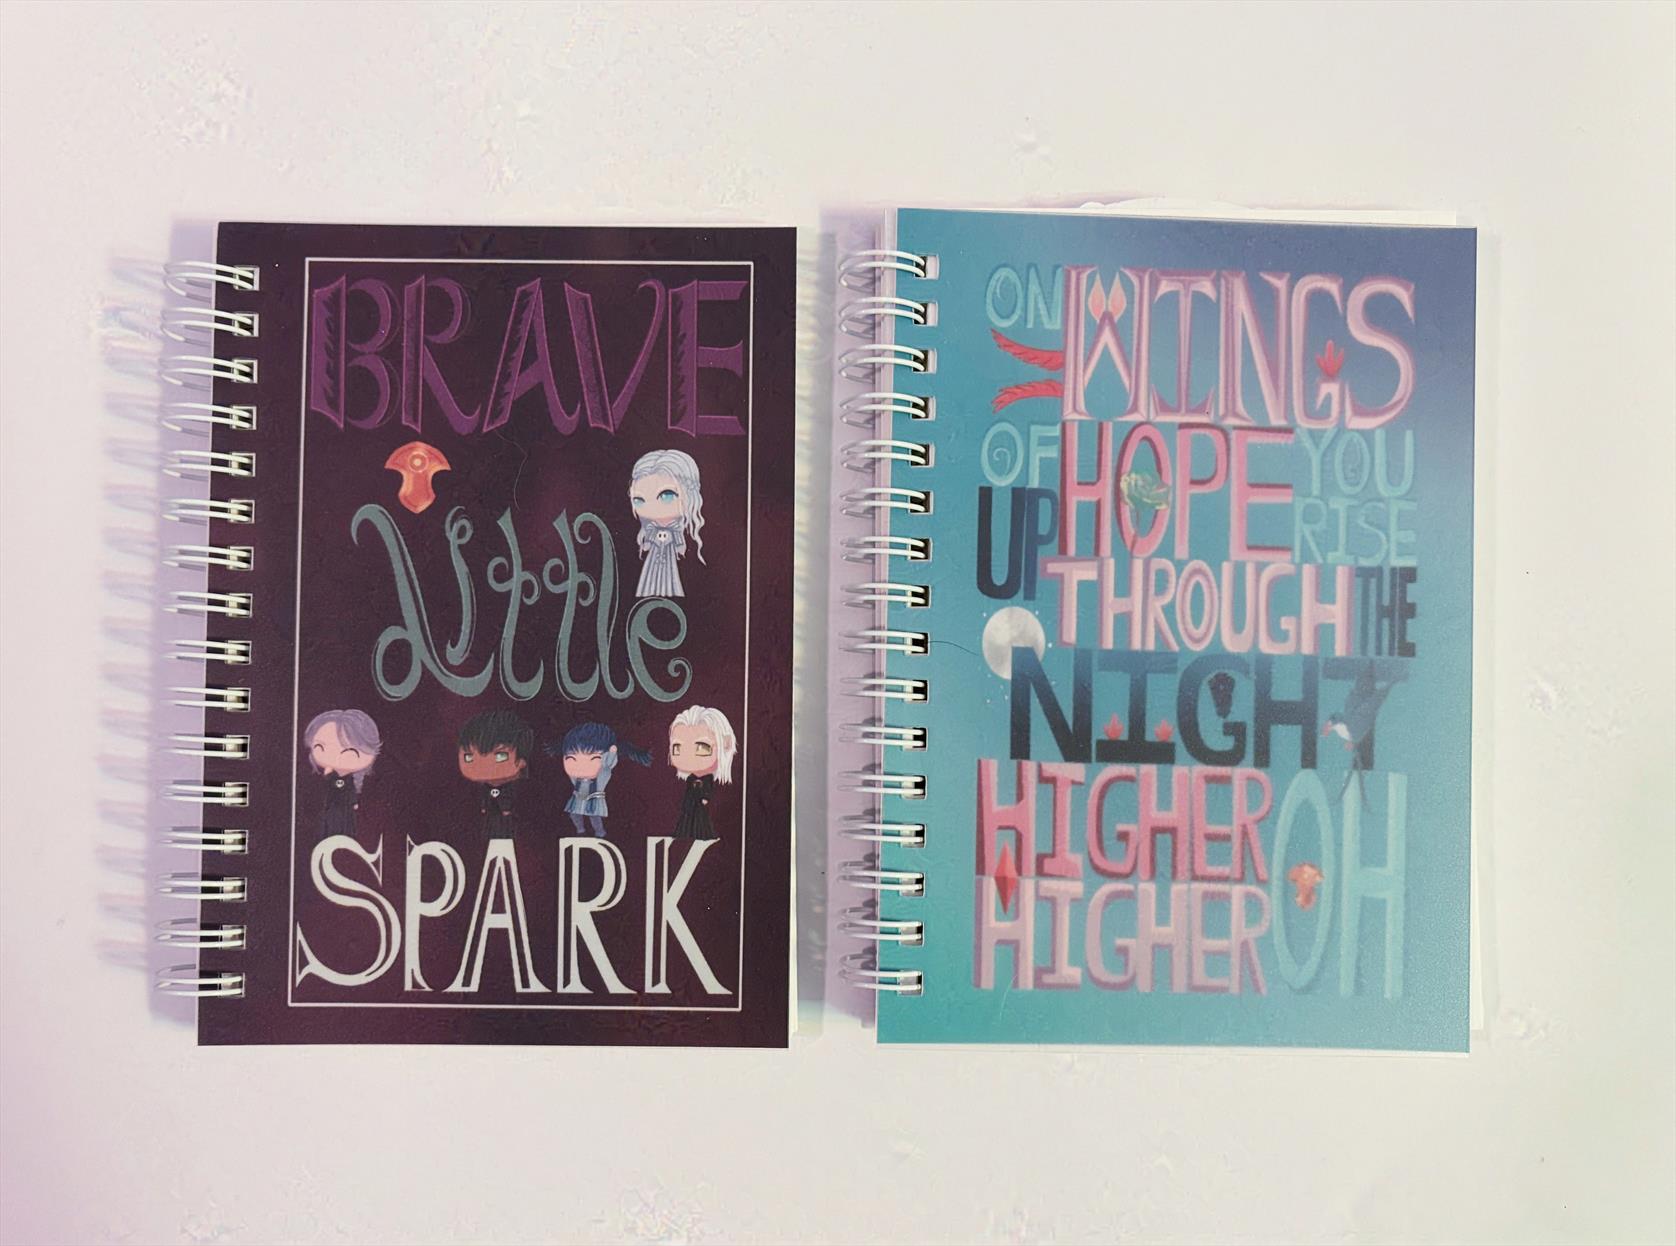 BRAVE
Little
SPARK
ON WINGS
OF HOPE YOU
UP RISE
THROUGH THE
NIGHT
HIGHER OH
HIGHER